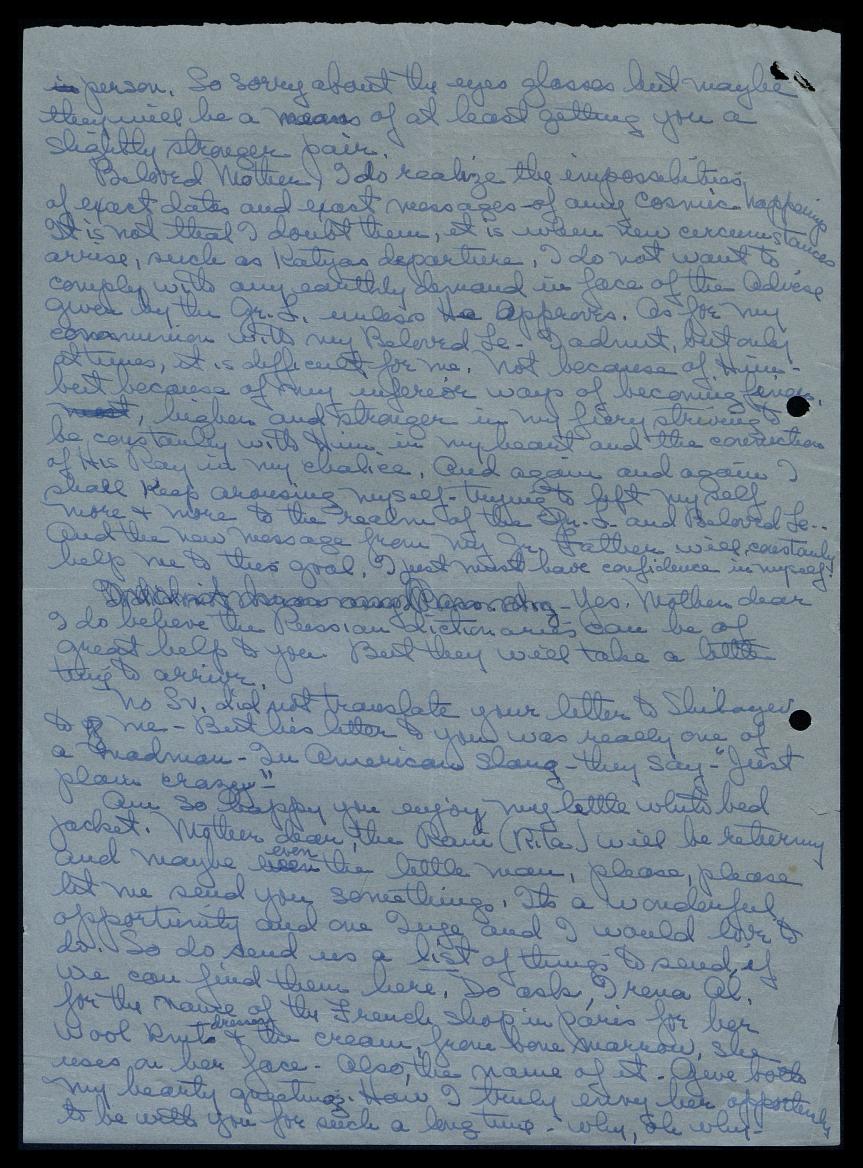 in person. So sorry about the eyes glasses but maybe
they will be a means of at least getting you a
slightly stronger pair.
Beloved Mother, I do realize the impossibilities
of exact dates and exact messages of any cosmic happenings
It is not that I doubt them, it is when new circumstances
arrise, such as Katyas departure, I do not want to
comply with any earthly demand in face of the Advise
given by the Gr. L. unless He Approves. As for my
communion with my Beloved Le- I admit, but only
at times, it is difficult for me. Not because of Him -
but because of my inferior ways of becoming finer,
higher and stronger in my fiery striving to
be constantly with Him in my heart and the conviction
of His Ray in my chalice. And again and again I
shall keep arousing myself - trying to lift my self
more & more to the realm of the Gr. L. and Beloved Le..
And the new message from my Gr. Father will constantly
help me to this goal. I just must have confidence in myself!
- Yes. Mother dear
I do believe the Russian dictionaries can be of
great help to you But they will take a little
time to arrive.
No Sv. did not translate your letter to Shibayev
to me - But his letter to you was really one of
a madman - In American slang - they say - "Just
plain crazy" -
Am so happy you enjoy my little white bed
jacket. Mother dear, the Rani (Rita) will be returning
and maybe even the little man, please, please
let me send you somethings. Its a wonderful
opportunity and one Inge and I would love to
do. So do send us a list of things to send, if
we can find them here. Do ask, Irena Al.
for the name of the French shop in Paris for her
Wool Knit dresses & the cream, from bone marrow, she
uses on her face - Also, the name of it - Give both
my beauty greetings. How I truly envy her opportunity
to be with you for such a long time - why, oh why -